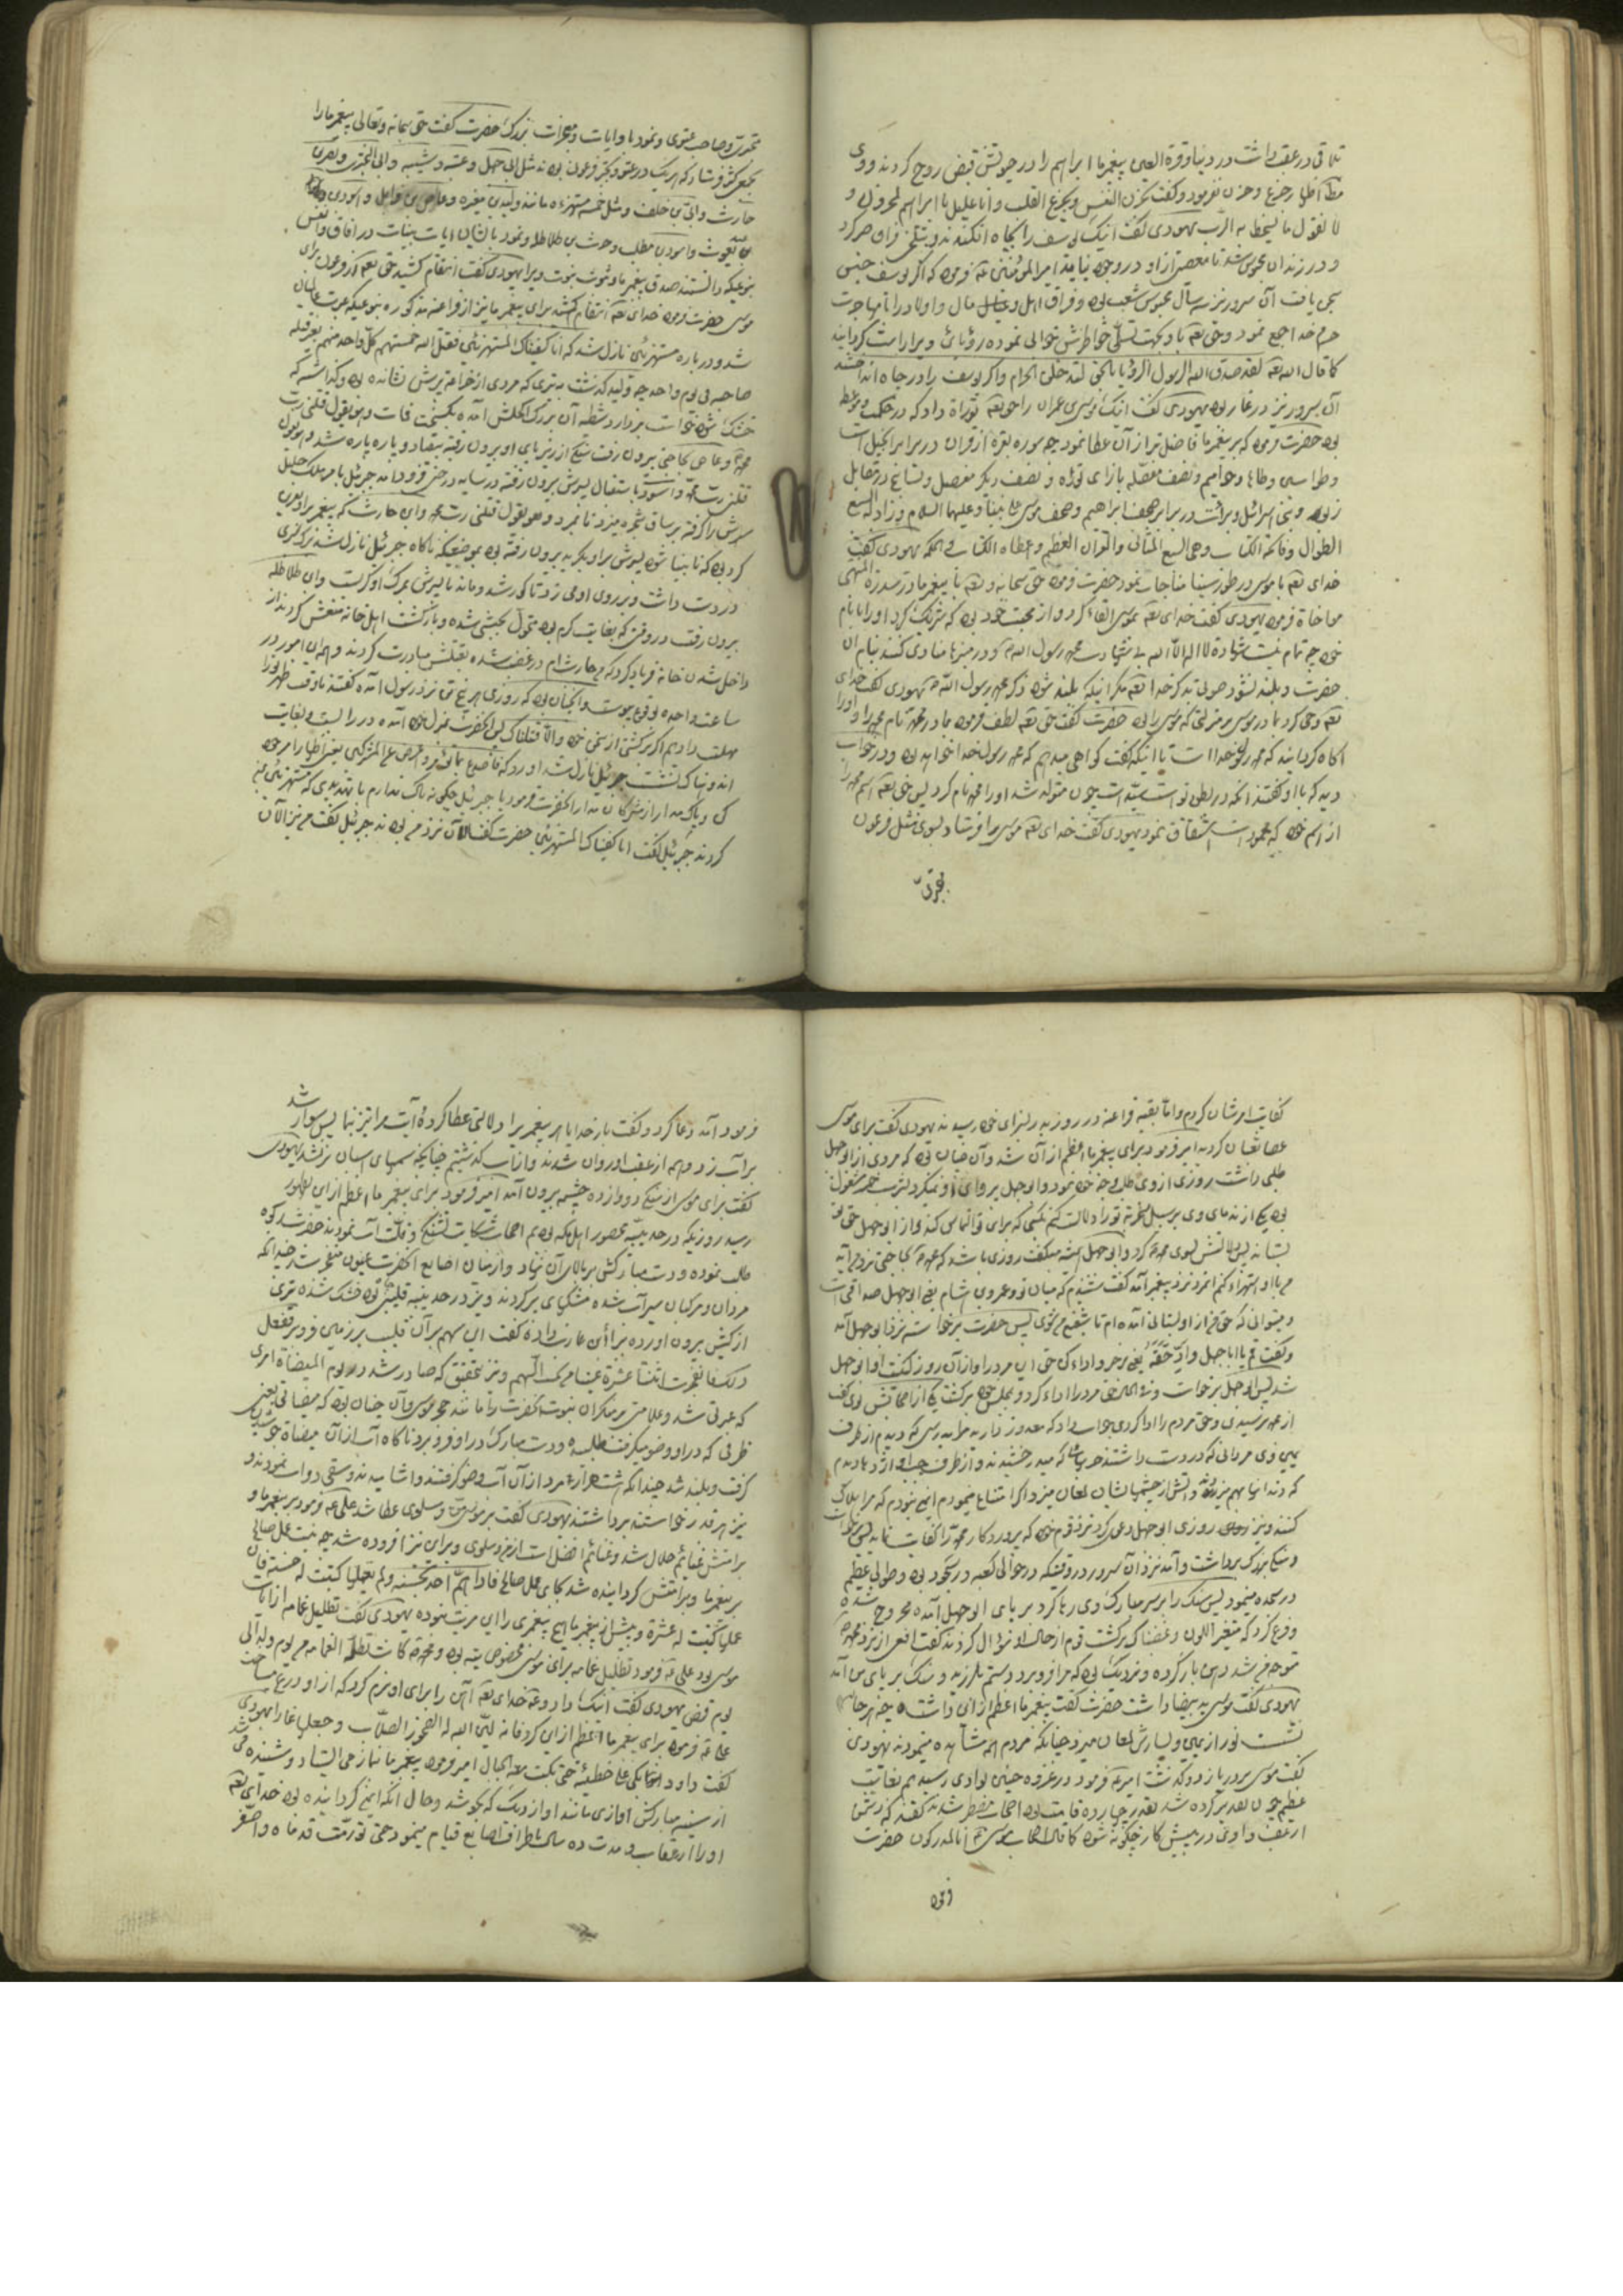 تلاقی در عقب داشت در دنیا و قرة العین پیغمبر ما ابراهیم را در حیوتش قبض روح کردند و وی
اظهار جزع و حزن نفرمود و گفت تحزن النفس و یجزع القلب و انا علیک یا ابراهیم لمحزونون و
لا نقول ما یسخط به الرب یهودی گفت اینک یوسف را بچاه افکندند و بتلخی فراق صبر کرد
و در زندان محبوس شد تا معصیتی از او در وجود نیاید امیر المؤمنین فرمود که اگر یوسف حبس
سجن یافت آن سرور نیز سه سال محبوس شعب بود و فراق اهل و مال و اولاد را با مهاجرت
حرم خدا جمع نمود و حق تعه باو بجهت تسلی خاطرش خوابی نموده رؤیای ویرا راست گردانید
کما قال الله تعه لقد صدق الله الرسول الرؤیا بالحق لتدخلن الحرام و اگر یوسف را در چاه انداختند
آن سرور نیز در غار بود یهودی گفت اینک موسی عمران را حق تعه توراة داد که در حکمت
بود حضرت فرمود که به پیغمبر ما فاضل تر از آن عطا نمود چه سوره بقره از قران در برابر انجیل است
و طواسین و طاها و حوامیم و نصف مفصله بازای توراة و نصف دیگر مفصل و تسابیح در مقابل
زبور و بنی اسرائیل و برائت در برابر صحف ابراهیم و صحف موسی علی نبینا و علیهما السلام و زاد له السبع
الطوال و فاتحة الکتاب و هی السبع المثانی و القران العظیم و اعطاه الکتاب و الحکمة یهودی گفت
خدای تعه با موسی در طور سینا مناجات نمود حضرت فرمود حق سبحانه و تعه با پیغمبر ما در سدرة المنتهی
مناجاة فرمود یهودی گفت خدای تعه بموسی القاء کرد از محبت خود بود که شریک کرد او را با نام
خود چه تمام نیست شهادة لا اله الا الله بی شهادت محمد رسول الله و در منبرها منادی کنند بنام آن
حضرت و بلند نشود صوتی بذکر خدا تعه مگر اینکه بلند شود ذکر محمد رسول الله یهودی گفت خدای
تعه وحی کرد بمادر موسی بر منزلتی که موسی را بود حضرت گفت حق تعه لطف فرمود مادر محمد بنام محمد و او را
اگاه گردانید که محمد رسول خداست تا اینکه گفت گواهی میدهم که محمد رسول خدا خواهد بود و در خواب
دید که باو گفتند آنکه در بطن تو است سید است چون متولد شد او را محمد نام کرد پس حق تعه اسم محمد را
از اسم خود که محمود است اشتقاق نمود یهودی گفت خدای تعه موسی را فرستاد بسوی مثل فرعون
صاحب عتوی و نمود باو ایات و معجزات بزرک حضرت گفت حق سبحانه و تعالی پیغمبر ما را
بجمعی کثیر فرستاد که هر یک در عتو و تکبر فرعون بودند مثل ابی جهل و عتبه و شیبه و ابی البختری و نضر بن
حارث و ابی بن خلف و مثل خمسه مستهزءه مانند ولید بن مغیره و عاص بن وایل و اسود بن
عبد یغوث و اسود بن مطلب و حرث بن طلاطله و نمود بایشان ایات بینات در افاق و انفس
بنوعیکه دانستند صدق پیغمبر ما و ثبوت نبوت ویرا یهودی گفت انتقام کشید حق تعه از فرعون برای
موسی حضرت فرمود خدای تعه انتقام کشید برای پیغمبر ما نیز از فراعنه مذکوره بنوعیکه عبرت عالمیان
شد و در باره مستهزئین نازل شد که انا کفیناک المستهزئین فقتل الله خمستهم کل واحد منهم بغیر قتله
صاحبه فی یوم واحد چه ولید گذشت به تیری که مردی از خزاعه پرش نشانده بود و گذاشته که
خشک شود
محمد و عاص بحاجتی بیرون رفت سنگی از زیر پای او بیرون رفته بیفتاد و پاره پاره شد و هو یقول
قتلنی رب محمد و اسود باستقبال پسرش بیرون رفته در سایه درختی فرود آمد جبرئیل بامر ملک جلیل
سرش را گرفته بر ساق شجره میزد تا بمرد و هو یقول قتلنی رب محمد و ابن حارث که پیغمبر بر او نفرین
کرد بود که نابینا شود پسرش برادیگر به بیرون رفته بود بموضعیکه ناگاه جبرئیل نازل شد برگ سبزی
در دست داشت و بر روی او می زد تا کور شد و ماند تا پسرش بمرگ او گریست و ابن طلاطله
بیرون رفت در وقتی که بغایت گرم بود متحول بحبشی شده و بازگشت اهل خانه منعش کردند از
داخل شدن خانه فریاد کرد که من حارث ام در غضب شده بقتلش مبادرت کردند و همه این امور در
ساعت واحده بوقوع پیوست و آنچنان بود که روزی این پنج تن نزد رسول آمده گفتند تا وقت ظهر
مهلت دادیم اگر برگشتی از سخن خود و الا قتلناک پس آنحضرت بمنزل خود آمده در را بست و بغایت
اندوهناک نشست جبرئیل نازل شد اورد که فاصدع بما تؤمر و اعرض عن المشرکین یعنی اظهار امر خود
کن و باک مدار از مشرکان مدار آنحضرت فرمود یا جبرئیل چگونه باک ندارم با تهدیدی که مستهزئین بمن
کردند جبرئیل گفت انا کفیناک المستهزئین حضرت گفت الآن نزد من بودند جبرئیل گفت من نیز الآن
کفایت امر ایشان کردم و اما بقیه فراعنه در روز بدر بسزای خود رسیدند یهودی گفت برای موسی
عصا ثعبان گردید امیر فرمود برای پیغمبر ما اعظم از آن شد و آن چنان بود که مردی از ابو جهل
طلبی داشت روزی از وی طلب وجه خود نمود و ابو جهل پروای او نمیکرد بشرب خمر مشغول
بود یکی از ندمای وی بر سبیل سخریه گفت تو را دلالت کنم بکسی که برای تو التماس کند و از ابو جهل حق تو
بستاند پس دلالتش بسوی محمد کرد و ابو جهل همیشه میگفت روزی باشد که محمد بحاجتی نزد من آید
من با او استهزاء کنم آنمرد نزد پیغمبر آمد گفت شنیدم که میان تو و عمرو بن هشام یعنی ابو جهل صداقت است
و میتوانی که حق من از او بستانی آمده ام تا شفیع من شوی پس حضرت برخواسته نزد ابو جهل آمد
و گفت قم یا ابا جهل و اد حقه یعنی برخیز و اداء کن حق این مرد را و از آن روز کنیت او ابو جهل
شد پس ابو جهل برخواست و فی الحال حق مرد را اداء کرد و بمجلس خود برگشت یکی از اصحابش بوی گفت
از محمد ترسیدی و حق مردم را ادا کردی جواب داد که معذور دارید مرا بدرستی که دیدم از طرف
یمین وی مردانی که در دست داشتند حربها که میدرخشیدند و از طرف چپ او اژدهایان دیدم
که دندانها بهم میزدند و آتش از چشمهایشان لمعان میزد اگر امتناع مینمودم ایمن نبودم که مرا هلاک
کنند و نیز روزی ابو جهل دعوی کرد نزد قوم خود که
و سنگ بزرک برداشت و آمد نزد آن سرور در وقتیکه در حوالی کعبه در سجود بود و طول عظیم
در سجده مینمود پس سنک را بر سر مبارک وی رها کرد بر پای ابو جهل آمده مجروح شده
رجوع کرد که متغیر اللون و غضبناک برگشت قوم از حال او سؤال کردند گفت افعی از نزد محمد
متوجه من شد دهن باز کرده و نزدیک بود که مرا فرو برد و دستم بلرزید و سنک بر پای من آمد
یهودی گفت موسی ید بیضا داشت حضرت گفت پیغمبر ما اعظم از این داشت چه هر جا که
نشست نور از یمین و یسارش لمعان میزد چنانکه مردم همه مشاهده مینمودند یهودی
گفت موسی بر دریا زد و گذشت امیر فرمود در غزوه حنین بوادی رسیدیم بغایت
عظیم چون تقدیر کرده شد بقدر چهارده قامت بود اصحاب مضطر شدند گفتند که دشمن
از عقب و وادی در پیش کار چگونه شود کما قال اصحاب موسی انا لمدرکون حضرت
فرمود
فرمود آمد دعا کرد و گفت بار خدایا هر پیغمبر را دلالتی عطا کرده آیت مرا نیز بنما پس سوار شد
بر آب زد و همه از عقب او روان شدند و از آب گذشتیم چنانکه سمهای اسبان تر نشد یهودی
گفت برای موسی از سنگ دوازده چشمه بیرون آمد امیر فرمود برای پیغمبر ما اعظم از این بظهور
رسید روزیکه در حدیبیه محصور اهل مکه بودیم اصحاب شکایت تشنگی و قلت آب نمودند حضرت رکوه
طلب نموده و دست مبارکش بر بالای آن نهاد و از میان اصابع آنحضرت عیون منفجر شد چندانکه
مردان و مرکبان سیراب شده مشکهای پر کردند و نیز در حدیبیه قلیبی بود خشک شده تیری
از کیش بیرون اورده ببراء بن عازب داده گفت این سهم بر آن قلیب بر زمین فرو بر ففعل
ذلک فانفجرت اثنتا عشرة عینا من تحت السهم و نیز بتحقیق که صادر شد در یوم المیضاة امری
که عبرتی شد و علامتی بر منکران نبوت آنحضرت را مانند حجر موسی و آن چنان بود که میضاتی یعنی
ظرفی که در او وضو میگرفت طلبیده و دست مبارک را در او فرو برد ناگاه آب از آن میضاة جوشیدن
گرفت و بلند شد چندانکه هشت هزار مرد از آن آب وضو گرفتند و اشامیدند و سقی دواب نمودند و
نیز هر قدر خواستند برداشتند یهودی گفت بر موسی من و سلوی عطا شد علی فرمود بر پیغمبر ما و
بر امتش غنائم حلال شد و غنائم افضل است از من و سلوی و برای این نیز افزوده شد چه نیت عمل صالح
بر پیغمبر ما و بر امتش گردانیده شد بجای عمل صالح فاذا هم احد بحسنة و لم یعملها کتبت له حسنة فان
عملها کتبت له عشرة و پیش از پیغمبر ما هیچ پیغمبری را این مرتبه نبوده یهودی گفت تظلیل غمامه از ایات
موسی بود علی فرمود تظلیل غمامه برای موسی مخصوص به تیه بود و محمد کانت تظله الغمامة من یوم ولد الی
یوم قبض یهودی گفت اینک داود خدای تعه آهن را برای او نرم کرد که از او درع ساخت
علی فرمود برای پیغمبر ما اعظم از این کرد فانه لین الله له الصخور الصلاب و جعلها غارا یهودی
گفت داود بکی علی خطیئته حتی بکت معه الجبال امیر فرمود پیغمبر ما نماز می ایستاد و شنیده می شد
از سینه مبارکش اوازی مانند اواز دیک که بجوشد و حال آنکه ایمن گردانیده بود خدای تعه
او را از عقاب و مدت ده سال باطراف اصابع قیام مینمود حتی تورمت قدماه و اصفر